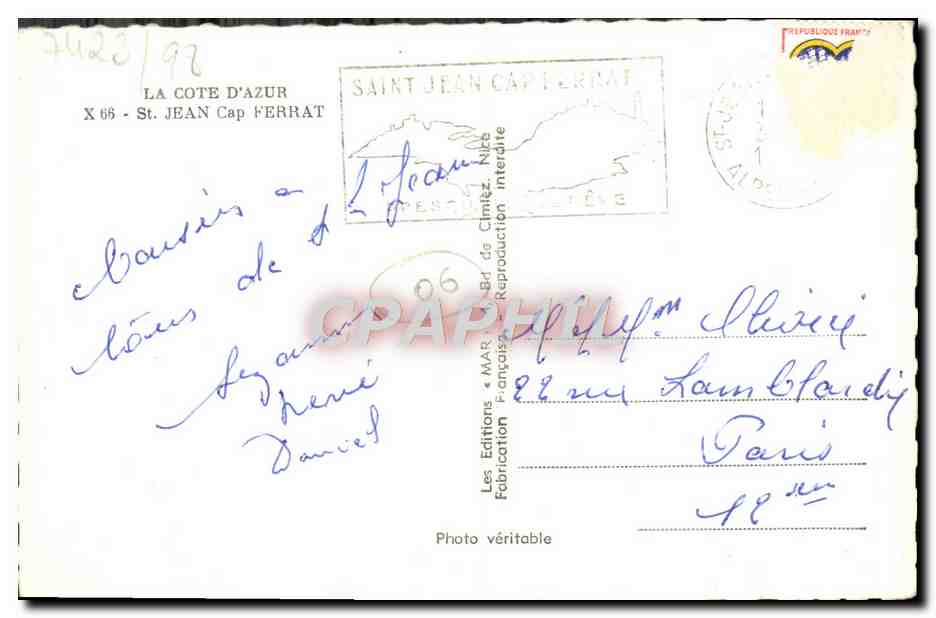 7423/98
LA COTE D'AZUR
X 66 - St. JEAN Cap FERRAT
SAINT JEAN CAP FERRAT
REPUBLIQUE FRANC
ST-JE
ALP
Baisers à
tous de St Jean
Suzanne
René
Daniel
06
CPAPHIL
Les Editions « MAR
Bd de Cimiez. Nice
Fabrication Française
Reproduction interdite
M. & Mme Olivier
22 rue Lamblardie
Paris
12 em
Photo véritable